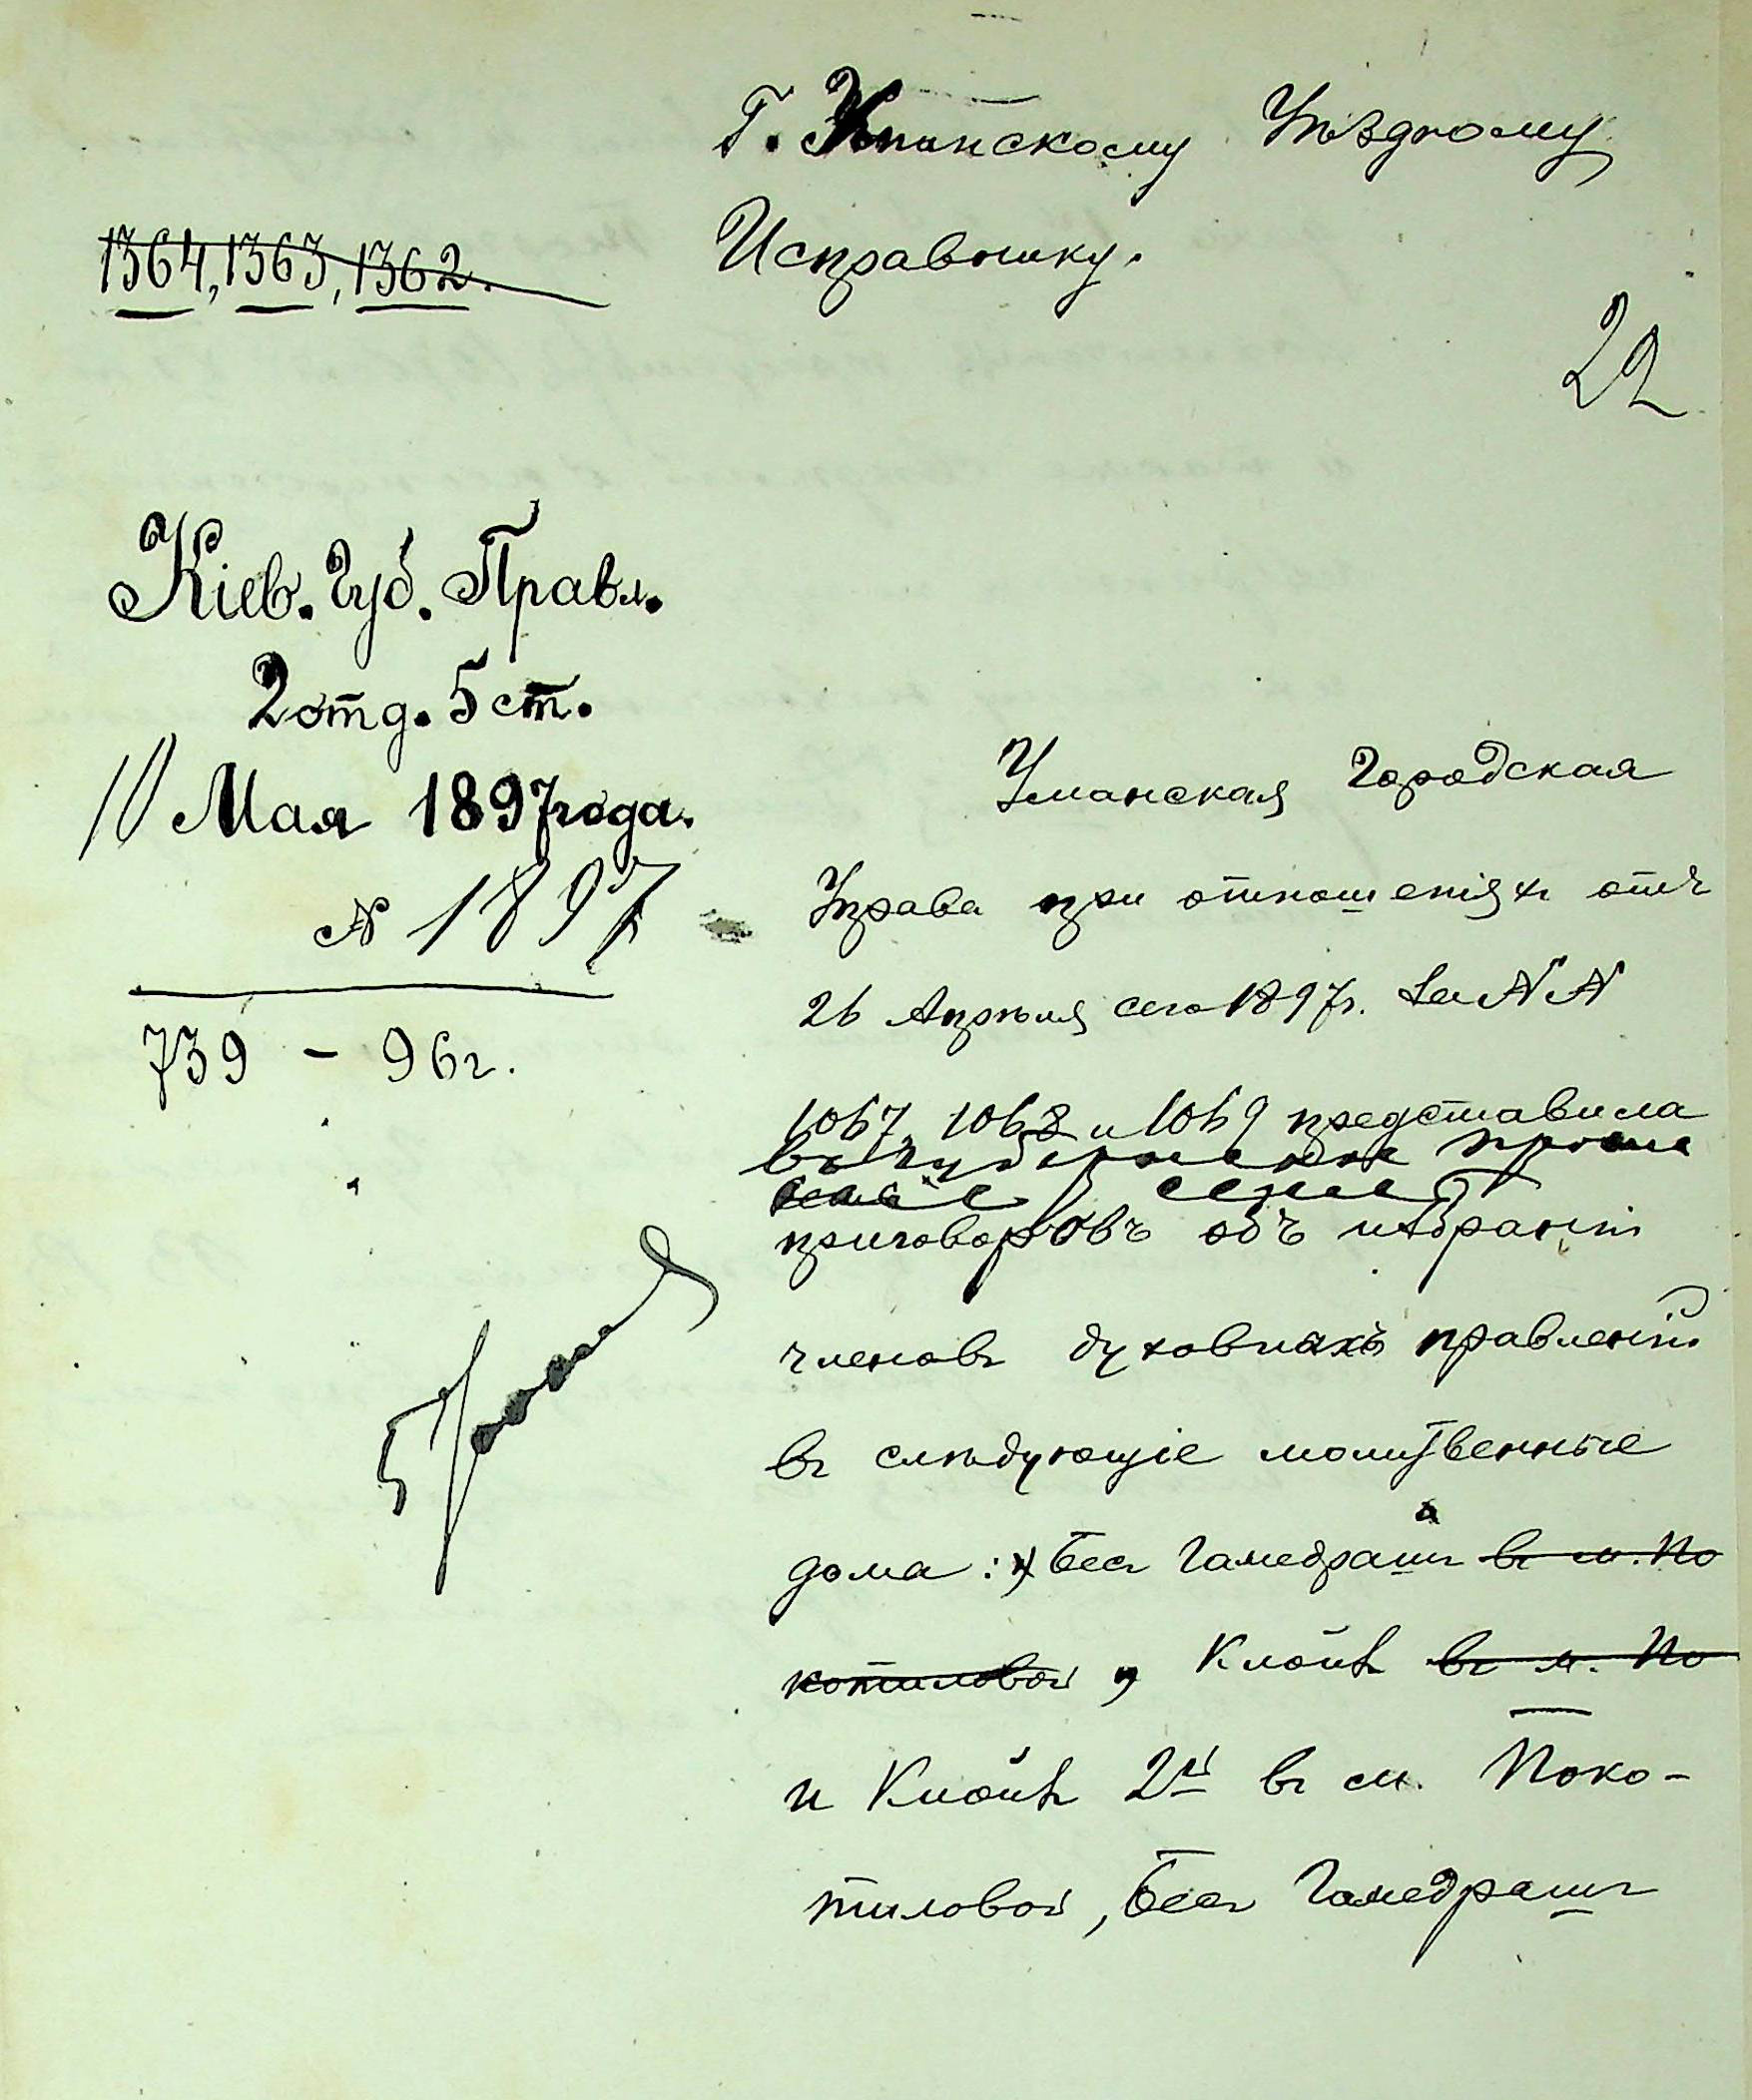 Г. Уманскому Уѣздному
Исправнику.
1364, 1363, 1362.
22
Кіев. Губ. Правл.
2 отд. 5 ст.
10 Мая 1897 года.
№ 1897
739 – 96 г.
Уманская Городская
Управа при отношеніяхъ отъ
26 Апрѣля сего 1897 г. за №№
1067, 1068 и 1069 представила
въ Губернское правле
ніе
приговоровъ объ избраніи
членовъ духовныхъ правленій
въ слѣдующіе молитвенные
дома: Бесъ Гамедрашъ въ м. По
котиловой, Клойзъ въ м. По
и Клойзъ 2й въ м. Поко-
тиловой, Бесъ Гамедрашъ